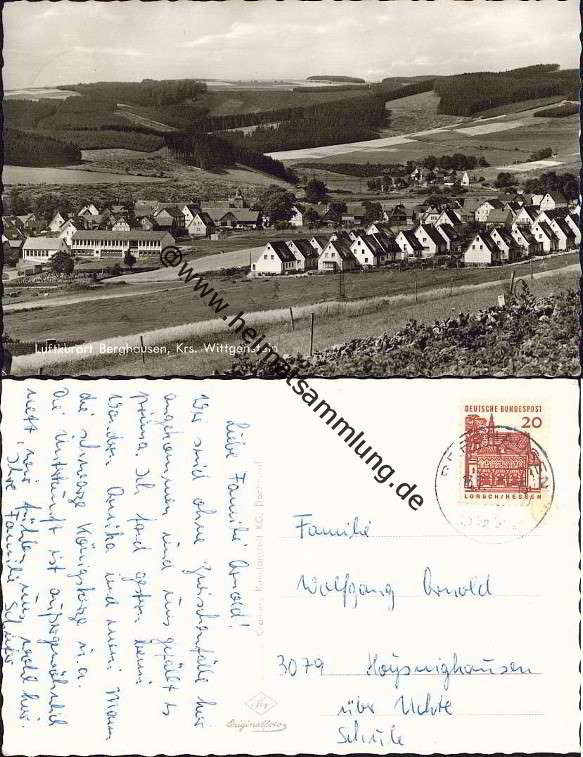 Luftkurort Berghausen, Krs. Wittgenstein
www.heimatsammlung.de
DEUTSCHE BUNDESPOST
20
LORSCH/HESSEN
Liebe Familie Arnold!
Wir sind ohne Zwischenfälle hier
angekommen und uns gefällt es
prima. Ich fand gestern beim
Wandern Arnika und mein Mann
die schwarze Königskerze u. a.
Die Unterkunft ist außergewöhnlich
nett, wir fühlen uns wohl hier.
Ihre Familie
Cramers Kunstanstalt KG, Dortmund
Originalfoto
Familie
Wolfgang Arnold
3079 Hoysinghausen
über Uchte
Schule